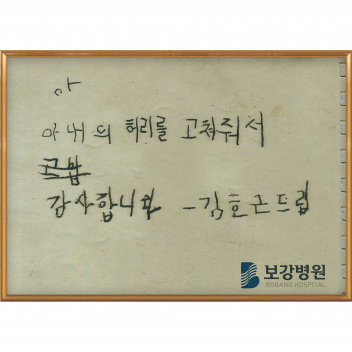 아
아내의 허리를 고쳐줘서
고맙
감사합니다 -김호근드림
보강병원
BOGANG HOSPITAL